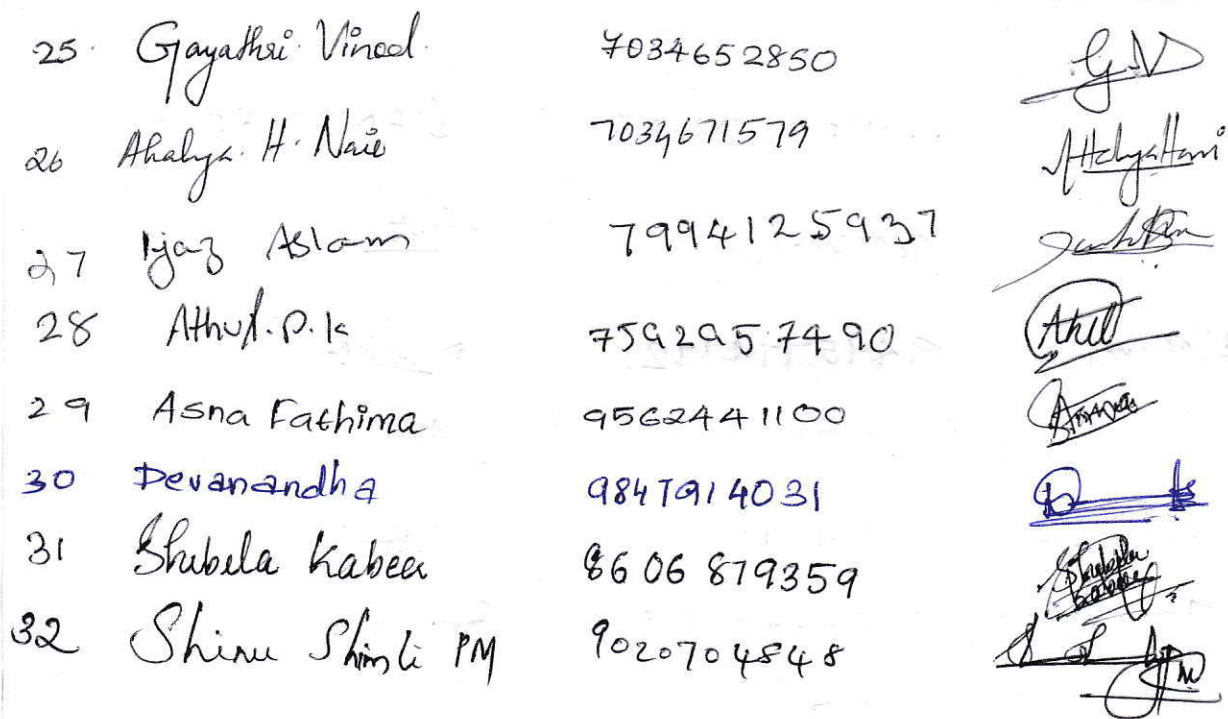 25. Gayathri Vinod. 7034652850 G.V
26 Ahalya. H. Nair 7034671579
27 Ijaz Aslam 7994125937
28 Athul.P.k 7592957490
29 Asna Fathima 9562441100
30 Devanandha 9847914031
31 Shubela Kabeer 8606879359
32 Shinu Shimli PM 9020704848